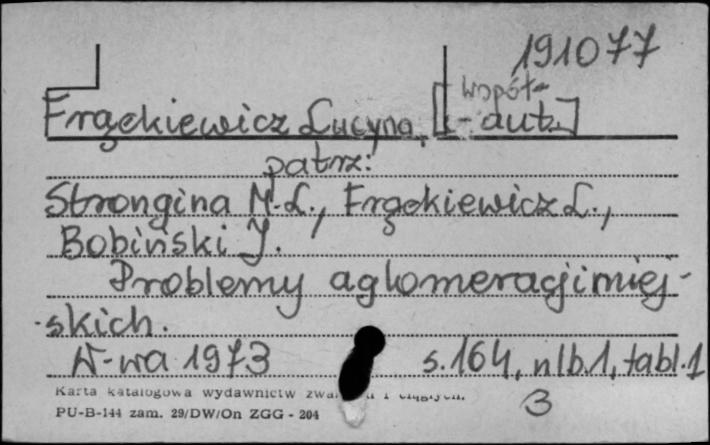 191077
współ-
Frąckiewicz Lucyna, [-aut.]
patrz:
Strongina M.L., Frąckiewicz L.,
Bobiński J.
Problemy aglomeracji miej-
skich.
W-wa 1973 s.164, nlb.1, tabl.1
Karta katalogowa wydawnictw i ciągłych.
PU-B-144 zam. 29/DW/On ZGG - 204
3